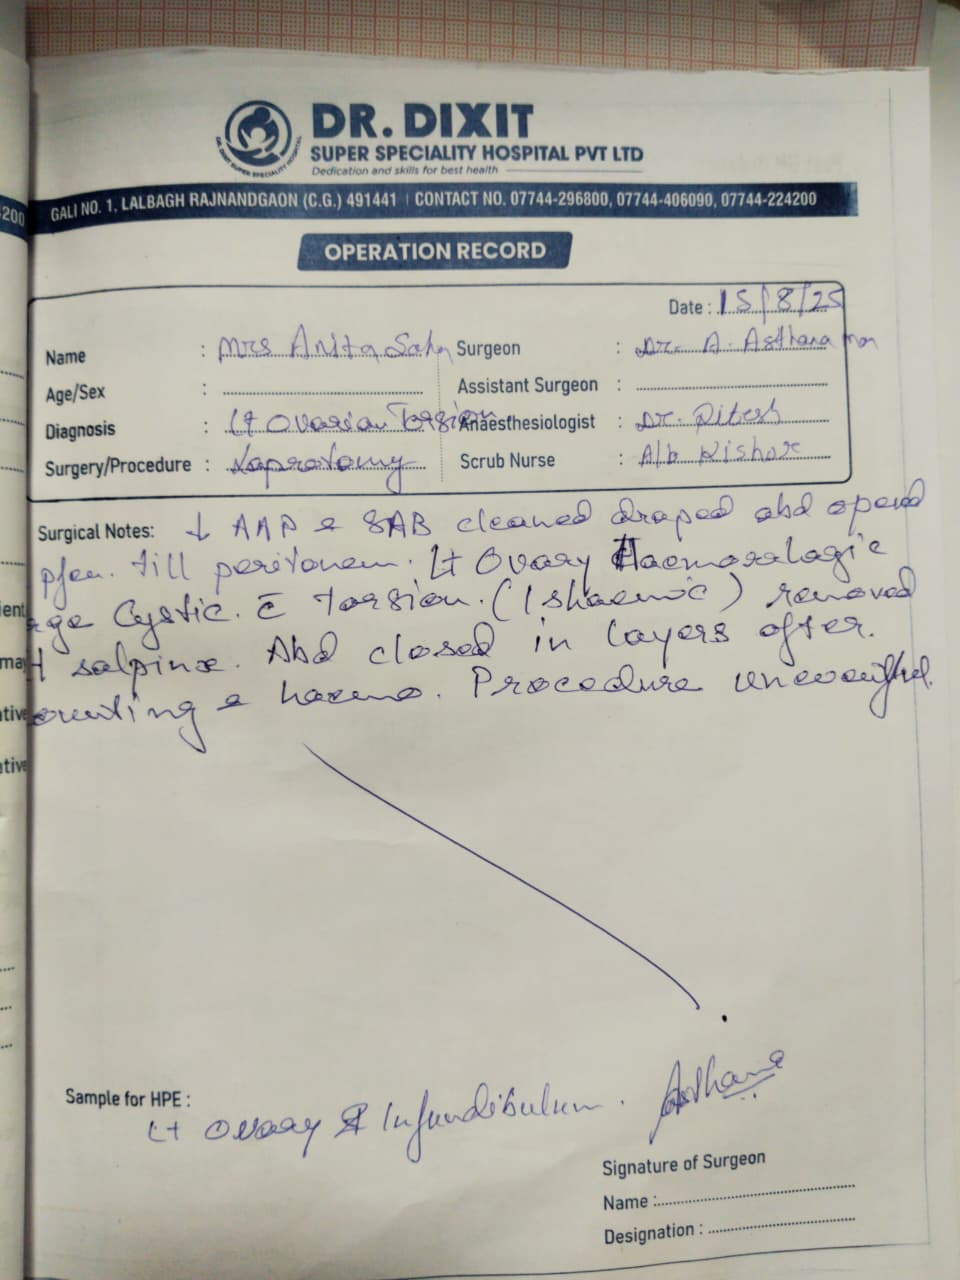 DR. DIXIT
SUPER SPECIALITY HOSPITAL PVT LTD
Dedication and skills for best health
DR. DIXIT SUPER SPECIALITY HOSPITAL
GALI NO. 1, LALBAGH RAJNANDGAON (C.G.) 491441 | CONTACT NO. 07744-296800, 07744-406090, 07744-224200
OPERATION RECORD
Date : 15/8/25
Name : Mrs Anita Sahu Surgeon : Dr. A. Asthana
Age/Sex : Assistant Surgeon :
Diagnosis : Lt Ovarian Torsion Anaesthesiologist : Dr. Ritesh
Surgery/Procedure : Laprotomy Scrub Nurse : A/b Kishor
Surgical Notes: ↓ AAP & SAB cleaned draped abd opend
pfen. till peritonem. Lt Ovary Haemorrlagic
Cystic. c̄ Torsion. (Ishaemic) removed
salpinx. Abd closed in layers after.
haemo. Procedure uneventful.
Sample for HPE :
Lt Ovary & Infundibulum.
Asthana
Signature of Surgeon
Name :
Designation :
200
ient
may
ative
ative